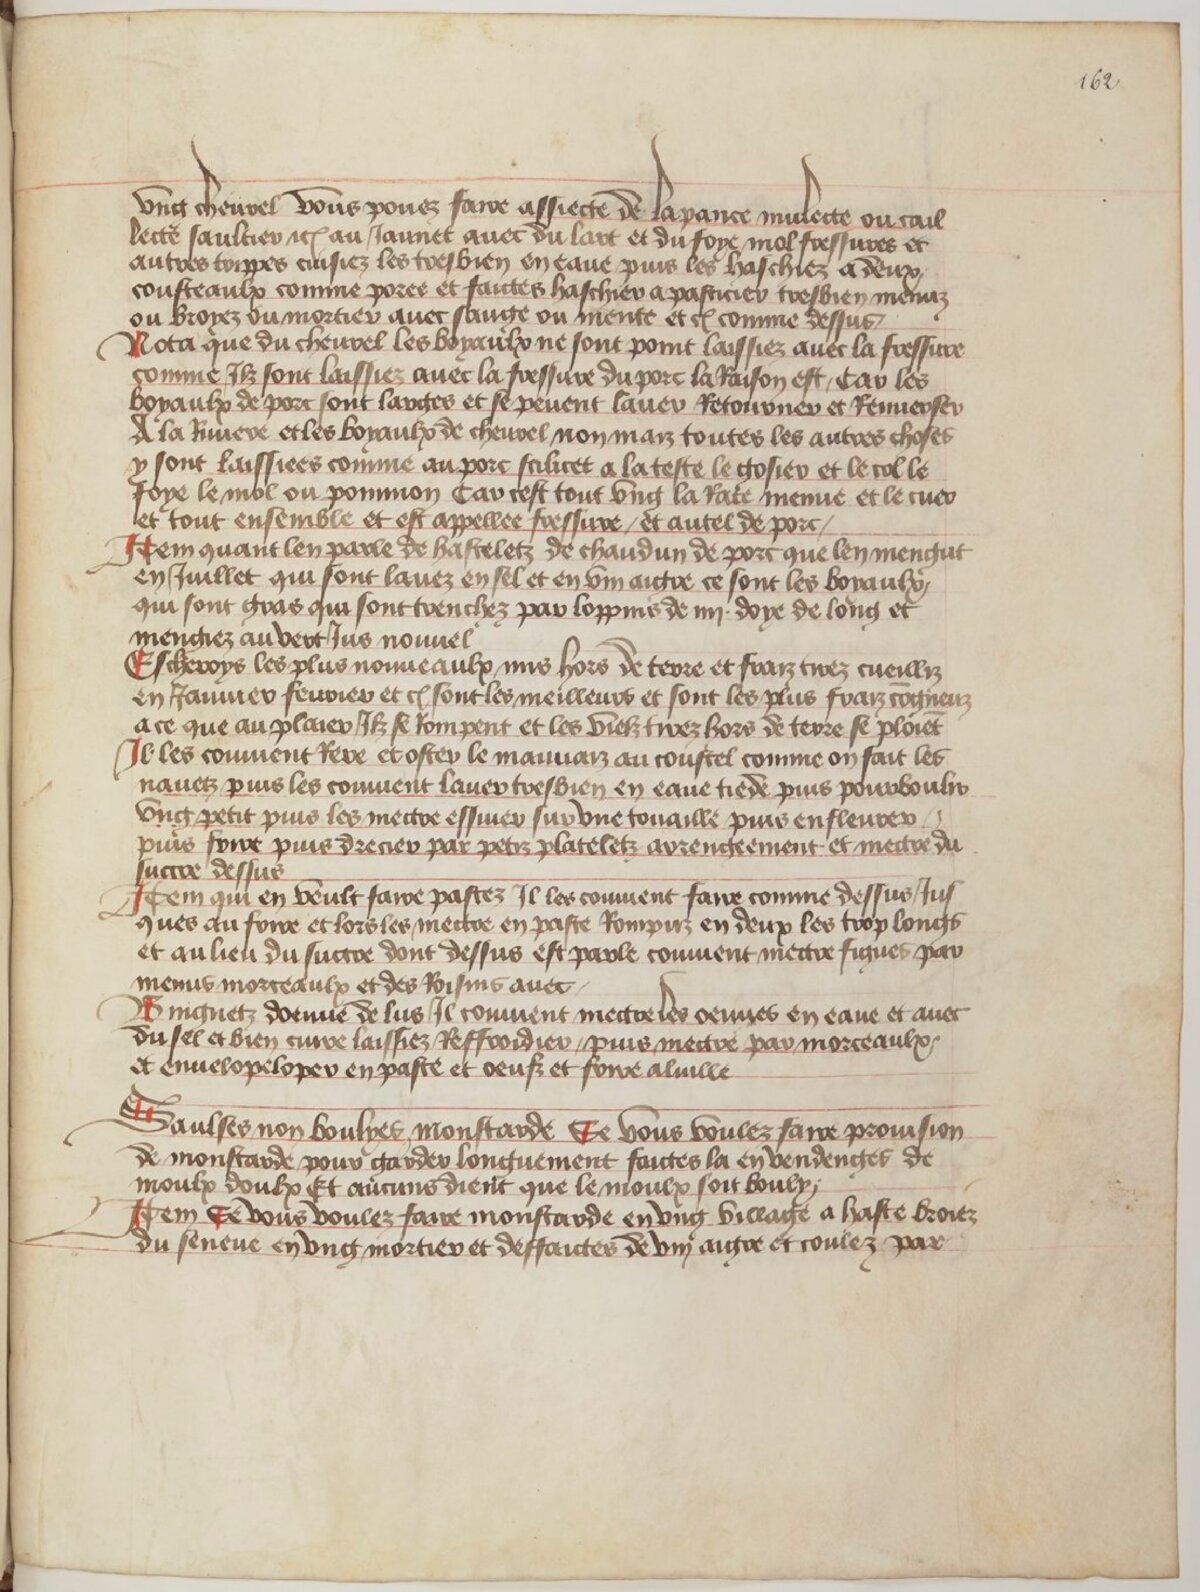 162
Ung chevrel vous povez faire assiecte de la pance mulecte ou cail
lecte saultier etc au jaunet avec du lart et du foye mol fressures et
autres trippes cuisiez les tresbien en eaue puis les haschiez a deux
cousteaulx comme poree et faictes haschier a pasticier tresbien menuz
ou broyez ou mortier avec sauge ou mente et etc comme dessus
Nota que du chevrel les boyaulx ne sont point laissiez avec la fressure
comme Ilz sont laissiez avec la fressure du porc la Raison est / Car les
boyaulx de porc sont larges et se pevent laver Retourner et Renverser
A la Riviere et les boyaulx de chevrel non maiz toutes les autres choses
y sont laissiees comme au porc scilicet a la teste le gosier et le col le
foye le mol ou pommon Car cest tout ung la Rate menue et le cuer
et tout ensemble et est appellee fressure / et autel de porc /
Item quant len parle de hasteletz de chaudun de porc que len mengut
en Juillet qui sont lavez en sel et en vin aigre ce sont les boyaulx
qui sont gras qui sont trenchez par loppins de iiii doye de long et
mengiez au vert Jus nouvel
Escheroys les plus nouveaulx mis hors de terre et fraiz tirez cueilliz
en Janvier fevrier et etc sont les meilleurs et sont les plus fraiz congneuz
a ce que au plaier Ilz se Rompent et les vielz tirez hors de terre se ploiet
Il les convient Rere et oster le mauvaiz au coustel comme on fait les
navetz puis les convient laver tresbien en eaue tiede puis pourboulir
ung petit puis les mectre essuier sur une touaille puis enfleurer /
puis frire puis drecier par petiz plateletz arrengeement et mectre du
succre dessus
Item qui en veult faire pastez Il les convient faire comme dessus Jus
ques au frire et lors les mectre en paste Rompuz en deux les trop longs
et au lieu du succre dont dessus est parle convient mectre figues par
menus morceaulx et des Roisins avec /
Ringuetz doeuve de lus Il convient mectre les oeuves en eaue et avec
du sel et bien cuire laissiez Reffroidier / puis mectre par morceaulx
et envelopeloper en paste et oeufz et frire a luille
Saulses non boulyes moustarde Se vous voulez faire provision
de moustarde pour garder longuement faictes la en vendenges de
moulx doulx Et aucuns dient que le moulx soit bouly
Item Se vous voulez faire moustarde en ung village a haste broiez
du seneve en ung mortier et deffaictes de vin aigre et coulez par